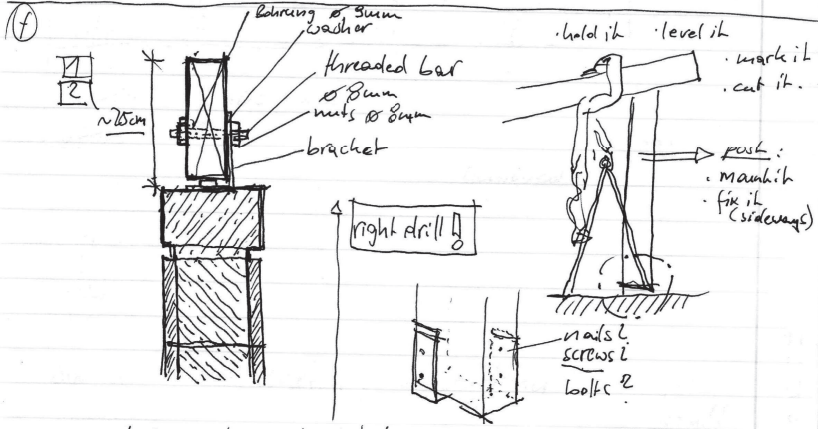 f
1
2
~25cm
Bohrung ø 9mm
washer
threaded bar
ø 8mm
nuts ø 8mm
bracket
right drill!
· hold it · level it
· mark it
· cut it.
push:
· fix it
(sideways)
nails?
screws?
bolts?